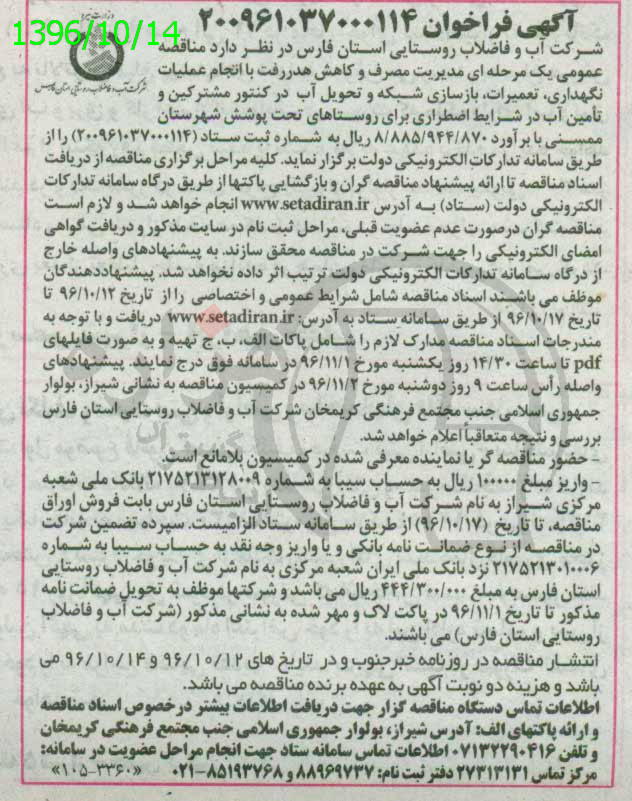 1396/10/14
آگهی فراخوان ۲۰۰۹۶۱۰۳۷۰۰۰۱۱۴
شرکت آب و فاضلاب روستایی استان فارس در نظر دارد مناقصه
عمومی یک مرحله ای مدیریت مصرف و کاهش هدررفت با انجام عملیات
نگهداری، تعمیرات، بازسازی شبکه و تحویل آب در کنتور مشترکین و
شرکت آب و فاضلاب روستایی استان فارس
تأمین آب در شرایط اضطراری برای روستاهای تحت پوشش شهرستان
ممسنی با برآورد ۸/۸۸۵/۹۴۴/۸۷۰ ریال به شماره ثبت ستاد (۲۰۰۹۶۱۰۳۷۰۰۰۱۱۴) را از
طریق سامانه تدارکات الکترونیکی دولت برگزار نماید. کلیه مراحل برگزاری مناقصه از دریافت
اسناد مناقصه تا ارائه پیشنهاد مناقصه گران و بازگشایی پاکتها از طریق درگاه سامانه تدارکات
الکترونیکی دولت (ستاد) بـه آدرس www.setadiran.ir انجام خواهد شـد و لازم اسـت
مناقصه گران درصورت عدم عضویت قبلی، مراحل ثبت نام در سایت مذکور و دریافت گواهی
امضای الکترونیکی را جهت شـرکت در مناقصه محقق سازند. به پیشنهادهای واصله خارج
از درگاه سـامانه تدارکات الکترونیکی دولت ترتیب اثر داده نخواهد شد. پیشنهاددهندگان
موظف می باشـند اسناد مناقصه شامل شرایط عمومی و اختصاصی را از تاریخ ۹۶/۱۰/۱۲ تا
تاریخ ۹۶/۱۰/۱۷ از طریق سـامانه ستاد به آدرس: www.setadiran.ir دریافت و با توجه به
مندرجات اسـناد مناقصه مدارک لازم را شـامل پاکات الف، ب، ج تهیه و به صورت فایلهای
pdf تا ساعت ۱۴/۳۰ روز یکشنبه مورخ ۹۶/۱۱/۱ در سامانه فوق درج نمایند. پیشنهادهای
واصله رأس ساعت ۹ روز دوشنبه مورخ ۹۶/۱۱/۲ در کمیسیون مناقصه به نشانی شیراز، بولوار
جمهوری اسلامی جنب مجتمع فرهنگی کریمخان شرکت آب و فاضلاب روستایی استان فارس
بررسی و نتیجه متعاقباً اعلام خواهد شد.
- حضور مناقصه گر یا نماینده معرفی شده در کمیسیون بلامانع است.
- واریز مبلغ ۱۰۰۰۰۰ ریال به حساب سیبا به شماره ۲۱۷۵۲۱۳۱۲۸۰۰۹ بانک ملی شعبه
مرکزی شـیراز به نام شـرکت آب و فاضلاب روسـتایی اسـتان فارس بابت فروش اوراق
مناقصه، تا تاریخ (۹۶/۱۰/۱۷) از طریق سـامانه ستاد الزامیست. سپرده تضمین شرکت
در مناقصـه از نـوع ضمانـت نامه بانکی و یا واریز وجه نقد به حساب سـیبا به شماره
۲۱۷۵۲۱۳۰۱۰۰۰۶ نزد بانک ملی ایران شعبه مرکزی به نام شرکت آب و فاضلاب روستایی
استان فارس به مبلغ ۴۴۴/۳۰۰/۰۰۰ ریال می باشد و شرکتها موظف به تحویل ضمانت نامه
مذکور تا تاریخ ۹۶/۱۱/۱ در پاکت لاک و مهر شده به نشانی مذکور (شرکت آب و فاضلاب
روستایی استان فارس) می باشند.
انتشـار مناقصه در روزنامه خبرجنوب و در تاریخ های ۹۶/۱۰/۱۲ و ۹۶/۱۰/۱۴ می
باشد و هزینه دو نوبت آگهی به عهده برنده مناقصه می باشد.
اطلاعات تماس دستگاه مناقصه گزار جهت دریافت اطلاعات بیشتر درخصوص اسناد مناقصه
و ارائه پاکتهای الف: آدرس شیراز، بولوار جمهوری اسلامی جنب مجتمع فرهنگی کریمخان
و تلفن ۰۷۱۳۲۲۹۰۴۱۶ اطلاعات تماس سامانه ستاد جهت انجام مراحل عضویت در سامانه:
مرکز تماس ۲۷۳۱۳۱۳۱ دفتر ثبت نام: ۸۸۹۶۹۷۳۷ و ۸۵۱۹۳۷۶۸-۰۲۱
«۱۰۵-۳۳۶۰»